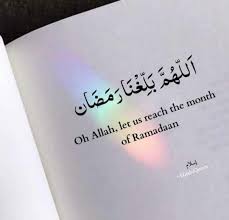 اَللّٰهُمَّ بَلِّغْنَا رَمَضَان
Oh Allah, let us reach the month
of Ramadaan